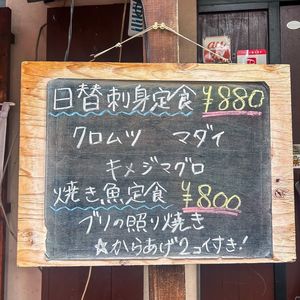 日替刺身定食 ¥880
クロムツ マダイ
キメジマグロ
焼き魚定食 ¥800
ブリの照り焼き
☆からあげ2コ付き!